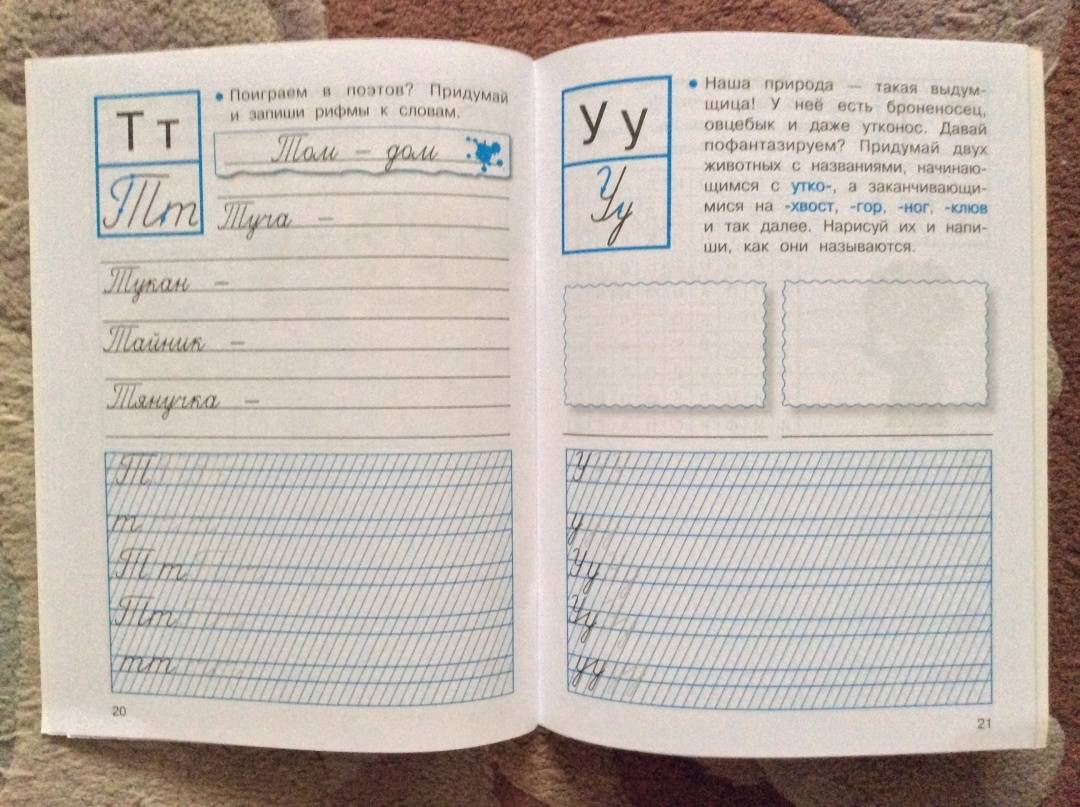 Т т
Тт
Поиграем в поэтов? Придумай
и запиши рифмы к словам.
Том – дом
Туча –
Тукан –
Тайник –
Тянучка –
Т
т
Т т
Тт
тт
20
У у
Уу
Наша природа — такая выдум-
щица! У неё есть броненосец,
овцебык и даже утконос. Давай
пофантазируем? Придумай двух
животных с названиями, начинаю-
щимся с утко-, а заканчивающи-
мися на -хвост, -гор, -ног, -клюв
и так далее. Нарисуй их и напи-
ши, как они называются.
У
у
Уу
Уу
уу
21